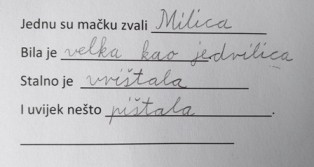 Jednu su mačku zvali Milica
Bila je velka kao jedvilica
Stalno je vrištala
I uvijek nešto pištala.